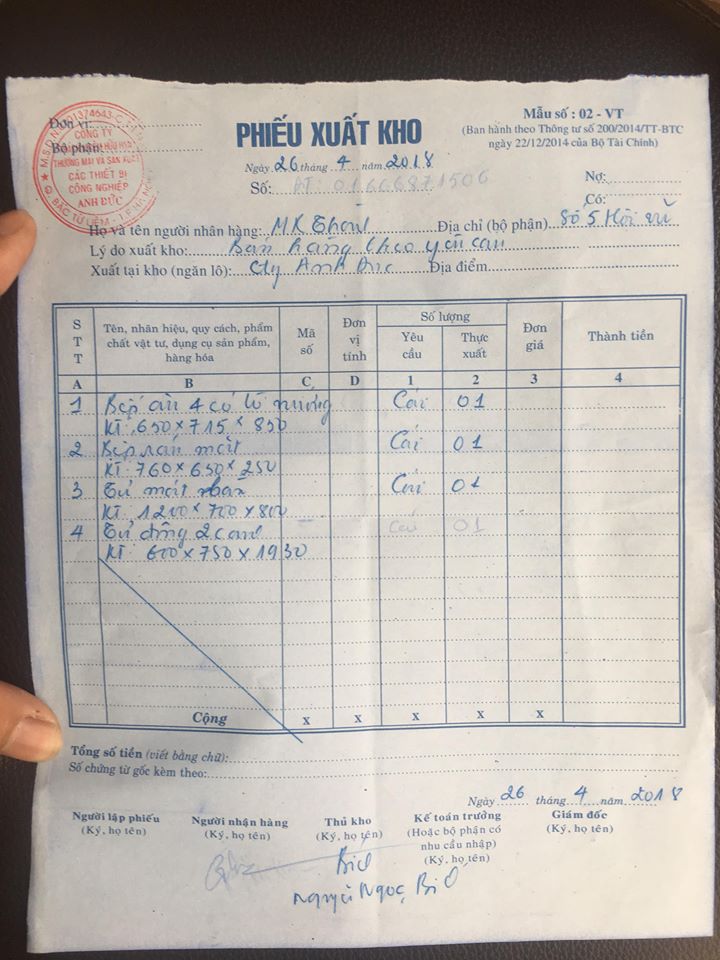 Đơn vị:
Bộ phận:
CÔNG TY
THƯƠNG MẠI VÀ SẢN XUẤT
CÁC THIẾT BỊ
CÔNG NGHIỆP
ANH ĐỨC
PHIẾU XUẤT KHO
Ngày 26 tháng 4 năm 2018
Số: ĐT: 01666871506
Mẫu số : 02 - VT
(Ban hành theo Thông tư số 200/2014/TT-BTC
ngày 22/12/2014 của Bộ Tài Chính)
Nợ:
Có:
Họ và tên người nhận hàng: MK Địa chỉ (bộ phận) Số 5
Lý do xuất kho: Bán hàng theo yêu cầu
Xuất tại kho (ngăn lô): Cty Anh Đức Địa điểm
STT Tên, nhãn hiệu, quy cách, phẩm chất vật tư, dụng cụ sản phẩm, hàng hóa Mã số Đơn vị tính Số lượng Yêu cầu Thực xuất Đơn giá Thành tiền
A B C D 1 2 3 4
1 Bếp âu 4 có lò nướng Cái 01
KT: 650 x 715 x 850
2 Bếp rán Cái 01
KT: 760 x 650 x 250
3 Tủ mát Cái 01
KT 1200 x 700 x 800
4 Tủ đông 2 cánh Cái 01
KT 600 x 750 x 1930
Cộng x x x x x
Tổng số tiền (viết bằng chữ):
Số chứng từ gốc kèm theo:
Ngày 26 tháng 4 năm 2018
Người lập phiếu Người nhận hàng Thủ kho Kế toán trưởng Giám đốc
(Ký, họ tên) (Ký, họ tên) (Ký, họ tên) (Hoặc bộ phận có nhu cầu nhập) (Ký, họ tên) (Ký, họ tên)
Nguyễn Ngọc